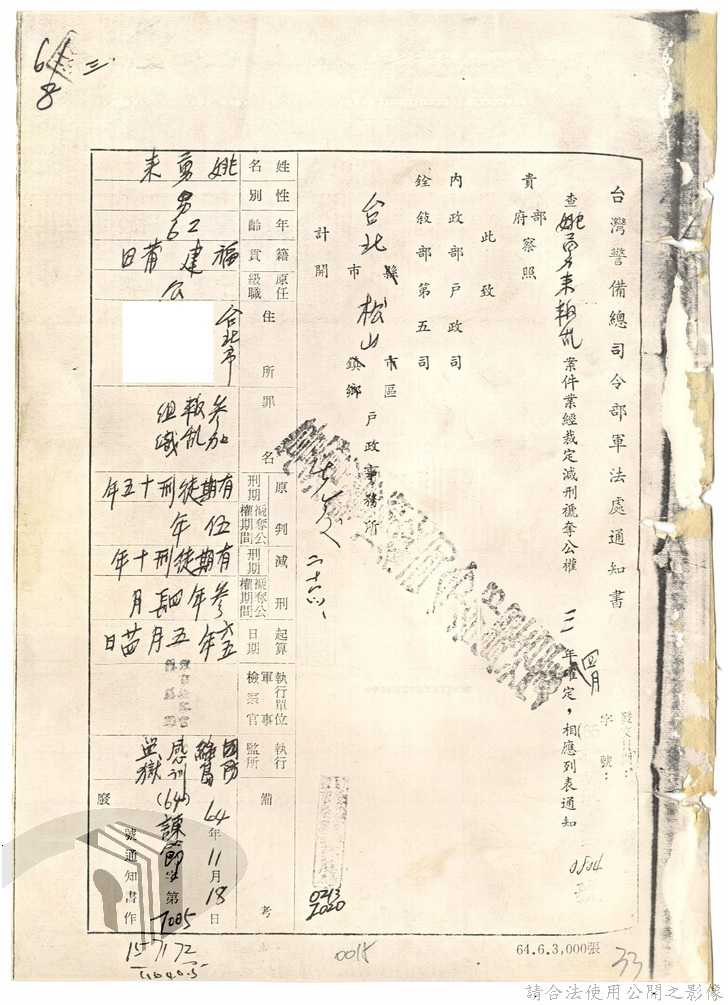 台灣警備總司令部軍法處通知書
發文日期：
字號：
查姚勇來叛乱案件業經裁定減刑褫奪公權三年四月確定，相應列表通知
貴部府察照
此致
內政部戶政司
銓敘部第五司
台北縣市松山市區鎮鄉戶政事務所
計開
姓名
姚勇來
性別
男
年齡
62
籍貫
福建莆田
原任級職
公
住所
台北市
罪名
參加叛乱組織
原判
刑期
有期徒刑十五年
褫奪公權期間
伍年
減刑
刑期
有期徒刑十年
褫奪公權期間
參年四月
起算日期
六五年五月廿日
執行單位軍事檢察官
執行監所
國防部綠島感訓監獄
備考
64年11月18日
(64)諫節字第7005
號通知書作廢
0213
2020
0804
0015
64.6.3,000張
33
618
三
請合法使用公開之影像